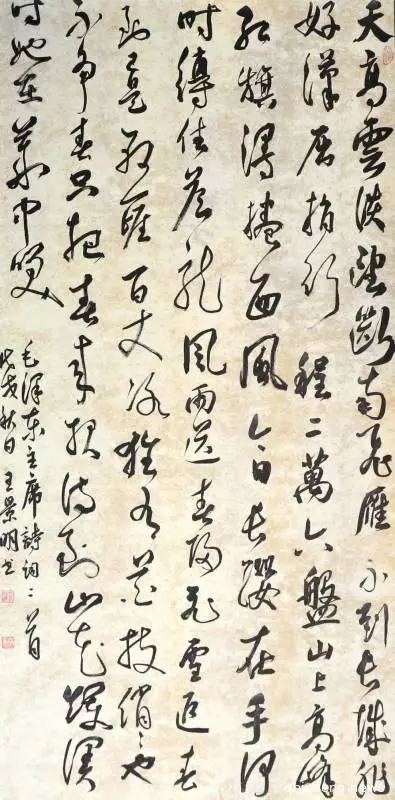 天高雲淡望斷南飛雁不到長城非
好漢屈指行程二萬六盤山上高峰
紅旗漫捲西風今日長纓在手何
時縛住蒼龍風雨送春歸飛雪迎春
到已是懸崖百丈冰猶有花枝俏々也
不爭春只把春來報待到山花爛漫
時她在叢中笑
毛澤東主席詩詞二首
戊戌秋日王景明書